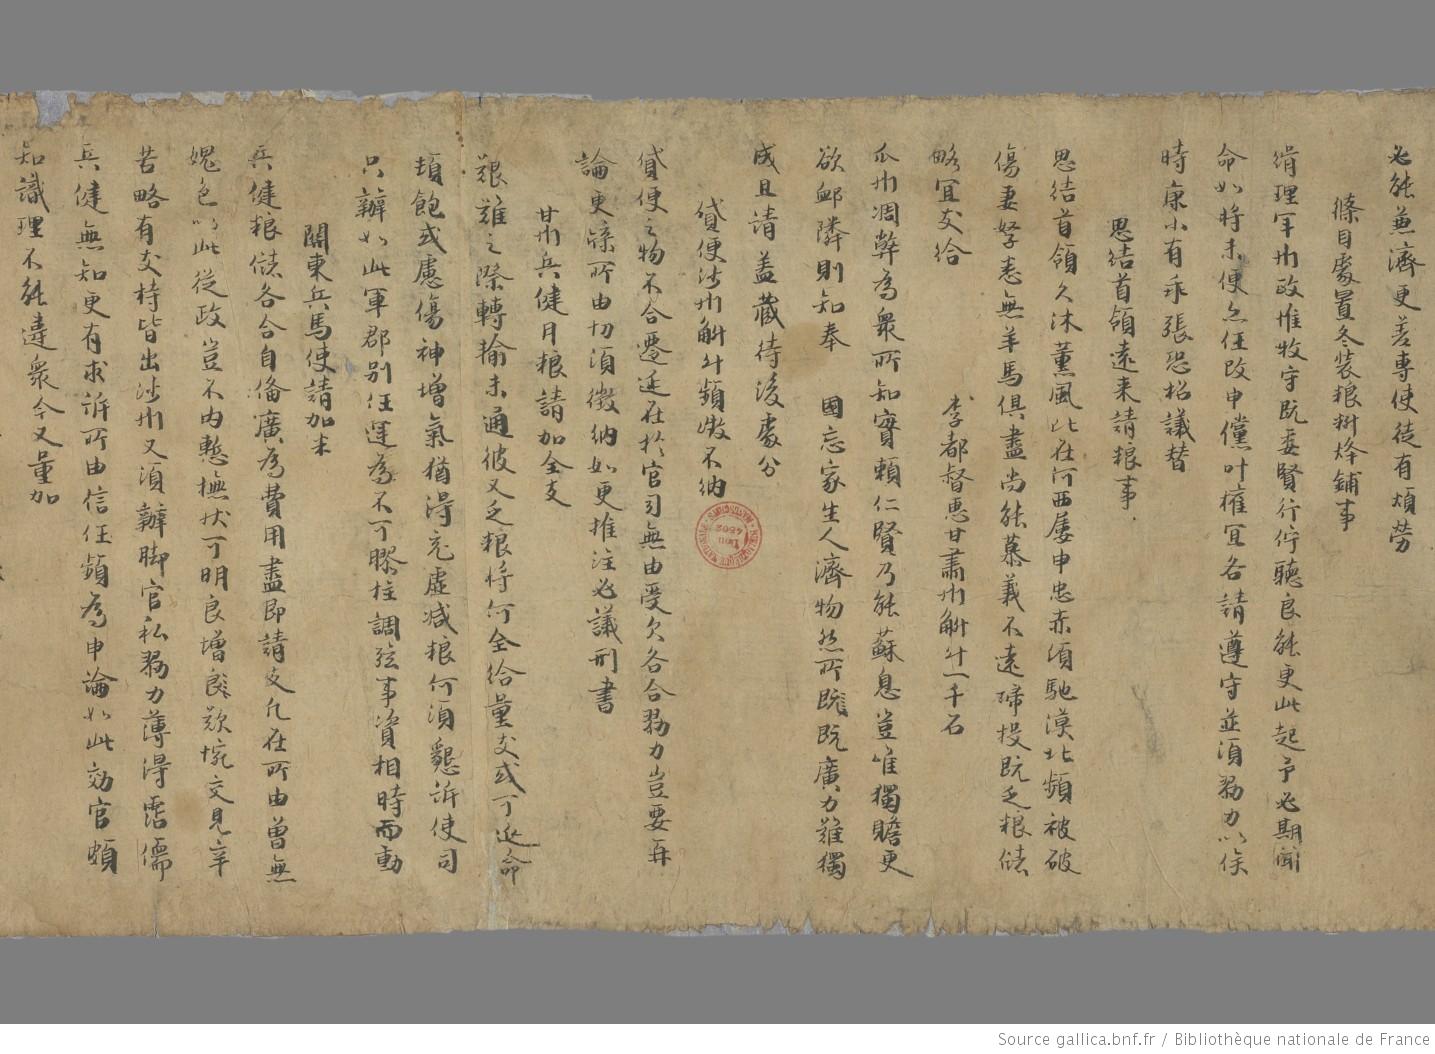 必能兼濟更差專使徒有煩勞
條目處置冬裝粮料烽鋪事
緝理軍州政惟牧守既委賢行佇聽良能更此起予必期聞
命如將未便亦任改申儻叶權冝各請遵守並須勠力以俟
時康小有乖張恐招議替
思結首領遠来請粮事
思結首領久沐薫風比在河西屡申忠赤須馳漠北頻被破
傷妻孥悉無羊馬俱盡尚能慕義不遠歸投既乏粮儲
略冝支給
李都督惠甘肅州斛斗一千石
瓜州凋弊為衆所知實賴仁賢乃能蘇息豈唯獨贍更
欲䘏隣則知奉 國忘家生人濟物然所既廣力難獨
成且請盖藏待後處分
貸便沙州斛斗頻徴不納
貸便之物不合遷延在於官司無由受欠各合勠力豈要再
論更牒所由切須徴納如更推注必議刑書
甘州兵健月粮請加全支
艱難之際轉輸未通彼又乏粮將何全給量支或可延命
頓飽或慮傷神增氣猶得充虚减粮何須懇訴使司
只辦如此軍郡別任運為不可膠柱調弦事資相時而動
關東兵馬使請加米
兵健粮儲各合自俻廣為費用盡即請支凡在所由曽無
媿色以此従政豈不内慙撫狀可明良增歎惋交見辛
苦略有支持皆出沙州又須辦脚官私勠力薄得霑濡
兵健無知更有求訴所由信任頻為申論如此効官頗
知識理不能違衆今又量加